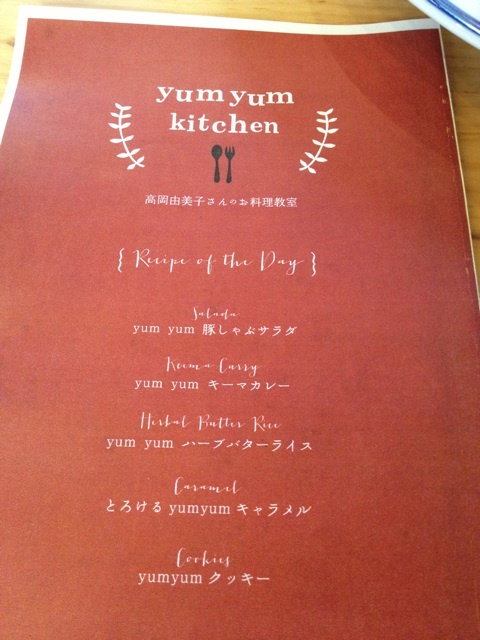 yum yum
kitchen
高岡由美子さんのお料理教室
{ Recipe of the Day }
Salada
yum yum 豚しゃぶサラダ
Keema Curry
yum yum キーマカレー
Herbal Butter Rice
yum yum ハーブバターライス
Caramel
とろける yumyum キャラメル
Cookies
yumyum クッキー